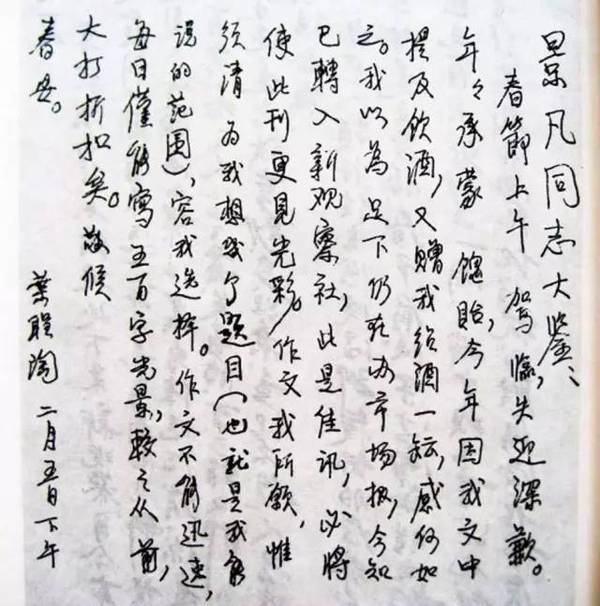 景凡同志大鉴、
春節上午 駕臨,失迎深歉。
年々承蒙 餽貽,今年因我文中
提及飲酒,又贈我绍酒一坛,感何如
之。我以為足下仍在办市场报,今知
已轉入新观察社,此是佳讯,必将
使此刊更見光彩。作文我所願,惟
须请为我想幾个題目(也就是我能
说的范围),容我选择。作文不能迅速,
每日僅能寫五百字光景,較之从前,
大打折扣矣。敬候
春安。
葉聖陶 二月五日下午